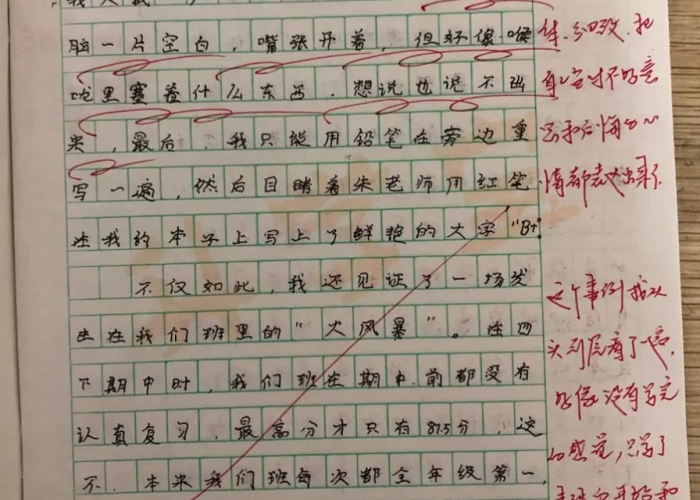 脑一片空白，嘴张开着，但好像喉
咙里塞着什么东西，想说也说不出
来，最后，我只能用铅笔在旁边重
写一遍，然后目睹着朱老师用红笔
在我的本子上写上了鲜艳的大字"B+"
不仅如此，我还见证了一场发
生在我们班里的"大风暴"。在四
下期中时，我们班在期中前都没有
认真复习，最高分才只有87.5分，这
不，本来我们班每次都全年级第一，
体、细致，把
情都表达出来了
这个事例我从
头到尾看了一遍，
好像没有写完
的感觉，只写了